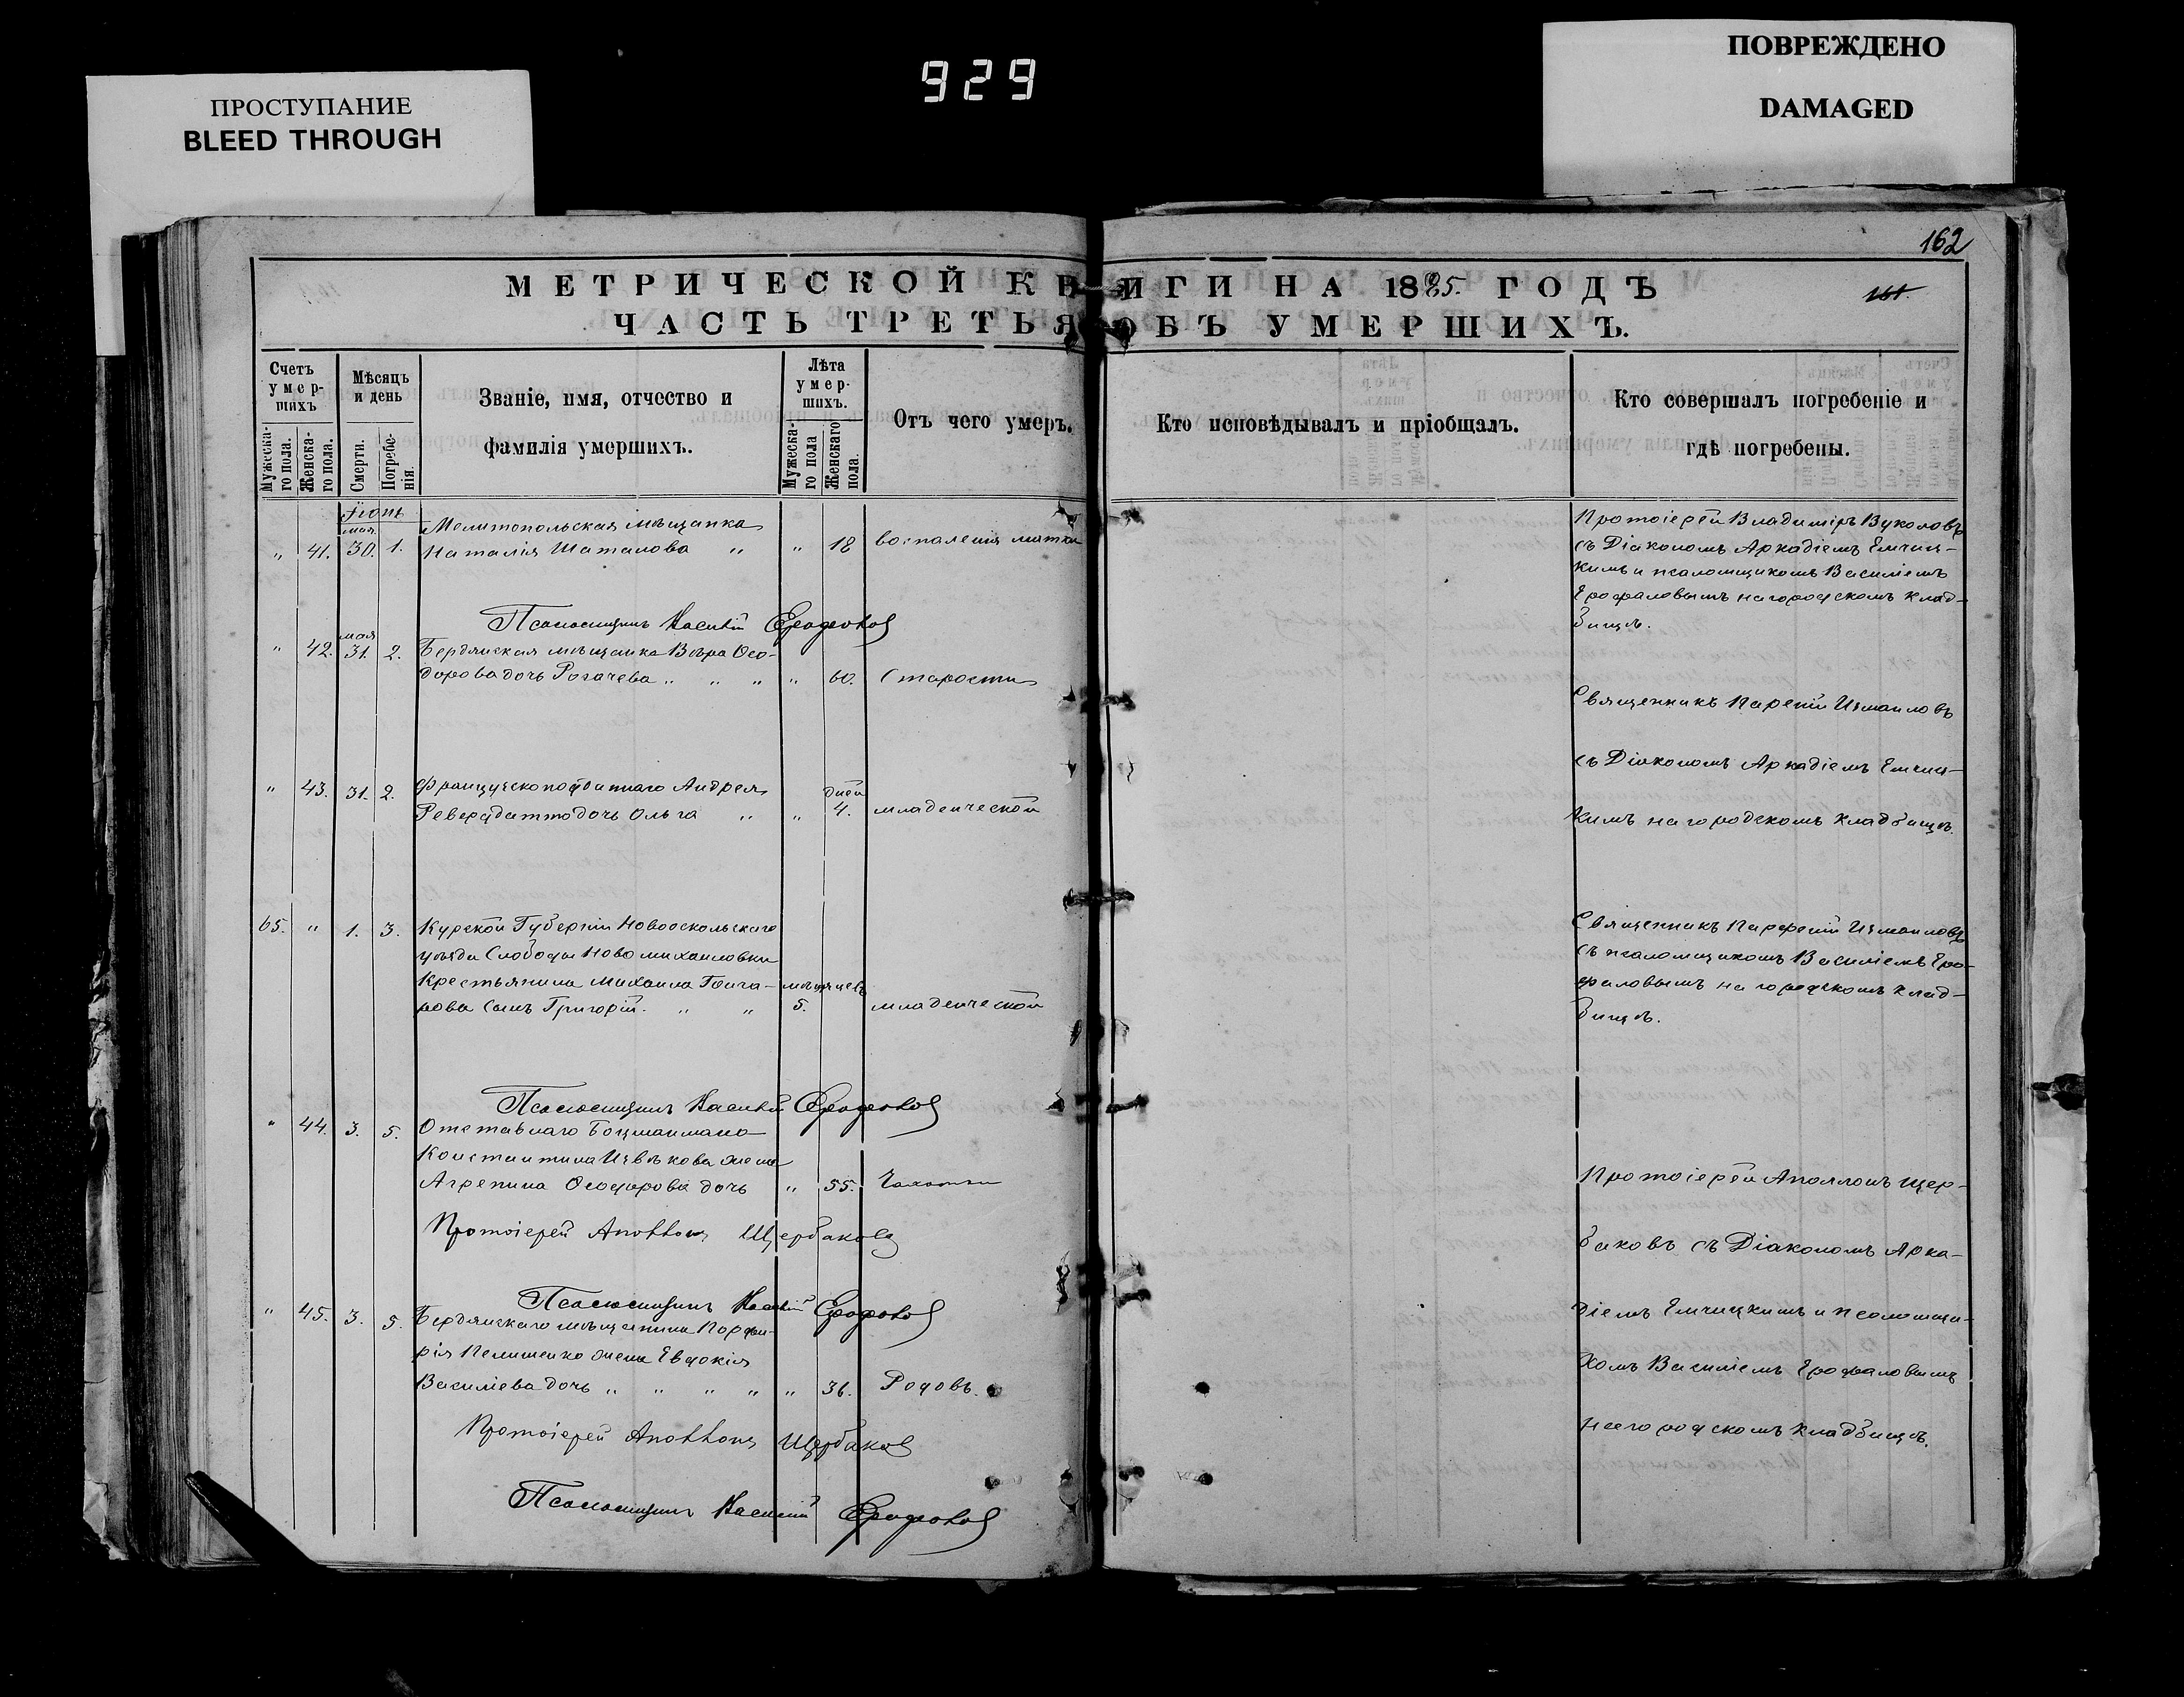 ПРОСТУПАНИЕ
BLEED THROUGH
929
ПОВРЕЖДЕНО
DAMAGED
162
МЕТРИЧЕСКОЙ КНИГИ НА 1885. ГОДЪ
161.
ЧАСТЬ ТРЕТЬЯ ОБЪ УМЕРШИХЪ.
Счетъ умер-шихъ
Мужеска-го пола.
Женска-го пола.
Мѣсяцъ и день
Смерти.
Погребе-нія.
Званіе, имя, отчество и
фамилія умершихъ.
Лѣта умер-шихъ.
Мужеска-го пола
Женскаго пола.
Отъ чего умеръ.
Кто исповѣдывалъ и пріобщалъ.
Кто совершалъ погребеніе и
гдѣ погребены.
Іюнь
мая
„ 41. 30. 1. Мелитопольская мѣщанка
Наталія Шаталова „ „ 18 воспаленія матки
Протоіерей Владиміръ Вуколовъ
съ Діакономъ Аркадіемъ Емчиц-
кимъ и псаломщикомъ Василіемъ
Ерофаловымъ на городскомъ клад-
бищѣ.
Псаломщикъ Василій Ерофалов
мая
„ 42. 31. 2. Бердянская мѣщанка Вѣра Ѳео-
дорова дочь Рогачева „ „ „ „ 60. Старости
Священникъ Парфеній Измаиловъ
съ Діакономъ Аркадіемъ Емчиц-
кимъ на городскомъ кладбищѣ.
„ 43. 31. 2. Французскоподданнаго Андрея
дочь Ольга „ „ дней 4. младенческой
65. „ 1. 3. Курской Губерніи Новооскольскаго
уѣзда Слободы Новомихайловки
Крестьянина Михаила Гонча-
рова сынъ Григорій. „ „ мѣсяцевъ 5. младенческой
Священникъ Парфеній Измаиловъ
съ псаломщикомъ Василіемъ Еро-
фаловымъ на городскомъ клад-
бищѣ.
Псаломщикъ Василій Ерофалов
„ 44. 3. 5. Отставнаго Боцманмата
Константина Извѣкова жена
Агрепина Ѳеодорова дочь „ 55. Чахотки
Протоіерей Аполлонъ Щербаковъ
Псаломщикъ Василій Ерофалов
Протоіерей Аполлонъ Щер-
баковъ съ Діакономъ Арка-
діемъ Емчицкимъ и псаломщи-
комъ Василіемъ Ерофаловымъ
на городскомъ кладбищѣ.
„ 45. 3. 5. Бердянскаго мѣщанина Порфи-
рія Пелишенко жена Евдокія
Василіева дочь „ „ „ „ „ 36. Родовъ.
Протоіерей Аполлонъ Щербаков
Псаломщикъ Василій Ерофалов